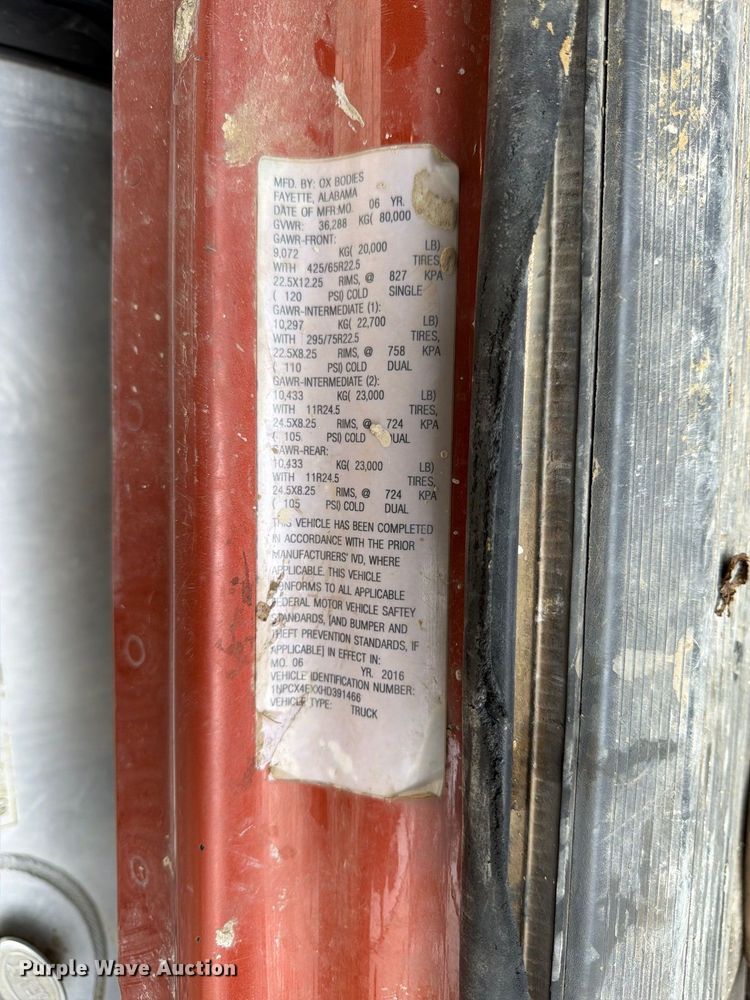 MFD. BY: OX BODIES
FAYETTE, ALABAMA
DATE OF MFR:MO. 06 YR.
GVWR: 36,288 KG( 80,000
GAWR-FRONT:
9,072 KG( 20,000 LB)
WITH 425/65R22.5 TIRES,
22.5X12.25 RIMS, @ 827 KPA
( 120 PSI) COLD SINGLE
GAWR-INTERMEDIATE (1):
10,297 KG( 22,700 LB)
WITH 295/75R22.5 TIRES,
22.5X8.25 RIMS, @ 758 KPA
( 110 PSI) COLD DUAL
GAWR-INTERMEDIATE (2):
10,433 KG( 23,000 LB)
WITH 11R24.5 TIRES,
24.5X8.25 RIMS, @ 724 KPA
( 105 PSI) COLD DUAL
GAWR-REAR:
10,433 KG( 23,000 LB)
WITH 11R24.5 TIRES,
24.5X8.25 RIMS, @ 724 KPA
( 105 PSI) COLD DUAL
THIS VEHICLE HAS BEEN COMPLETED
IN ACCORDANCE WITH THE PRIOR
MANUFACTURERS' IVD, WHERE
APPLICABLE. THIS VEHICLE
CONFORMS TO ALL APPLICABLE
FEDERAL MOTOR VEHICLE SAFTEY
STANDARDS, [AND BUMPER AND
THEFT PREVENTION STANDARDS, IF
APPLICABLE] IN EFFECT IN:
MO. 06 YR. 2016
VEHICLE IDENTIFICATION NUMBER:
1NPCX4EXXHD391466
VEHICLE TYPE: TRUCK
Purple Wave Auction